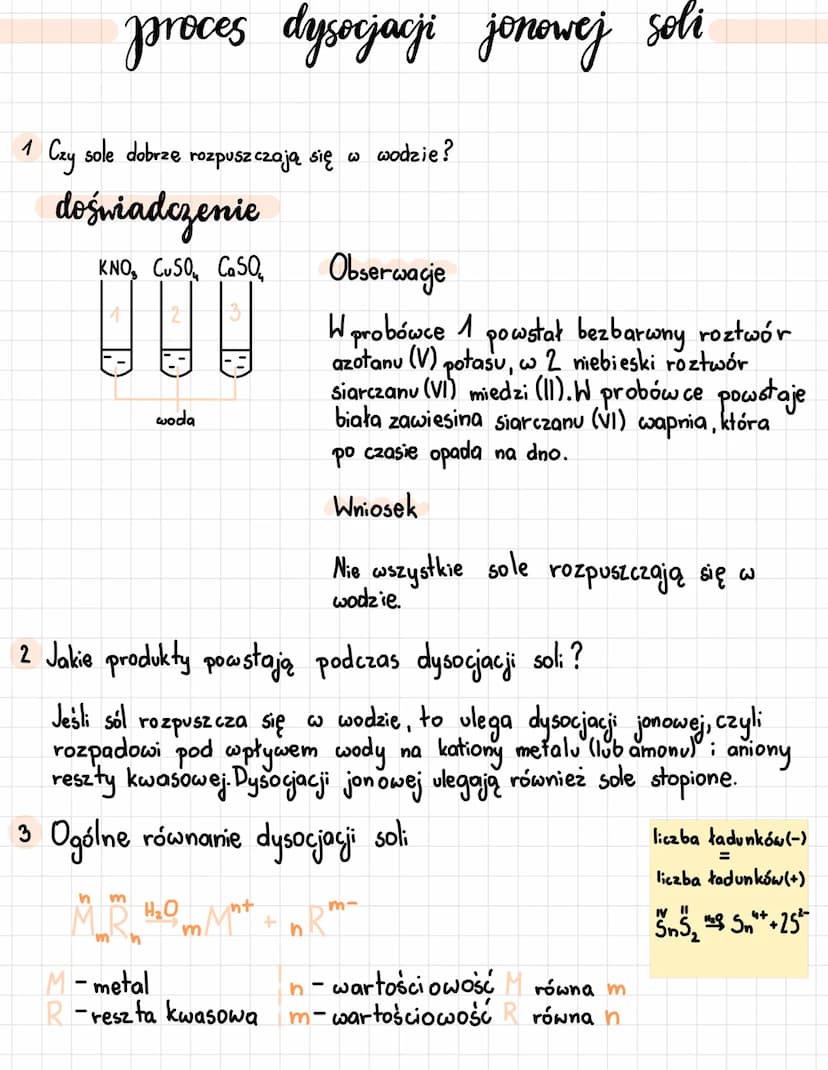 proces dysocjacji jonowej soli
1 Czy sole dobrze rozpuszczają się w wodzie?
doświadczenie
KNO₃ CuSO₄ CaSO₄
1 2 3
woda
Obserwacje
W probówce 1 powstał bezbarwny roztwór
azotanu (V) potasu, w 2 niebieski roztwór
siarczanu (VI) miedzi (II). W probówce powstaje
biała zawiesina siarczanu (VI) wapnia, która
po czasie opada na dno.
Wniosek
Nie wszystkie sole rozpuszczają się w
wodzie.
2 Jakie produkty powstają podczas dysocjacji soli?
Jeśli sól rozpuszcza się w wodzie, to ulega dysocjacji jonowej, czyli
rozpadowi pod wpływem wody na kationy metalu (lub amonu) i aniony
reszty kwasowej. Dysocjacji jonowej ulegają również sole stopione.
3 Ogólne równanie dysocjacji soli
n m
MₘRₙ H₂O→ mMⁿ⁺ + nRᵐ⁻
M - metal
R - reszta kwasowa
n - wartościowość M równa m
m - wartościowość R równa n
liczba ładunków(-)
=
liczba ładunków(+)
IV II
SnS₂ H₂O→ Sn⁴⁺ + 2S²⁻